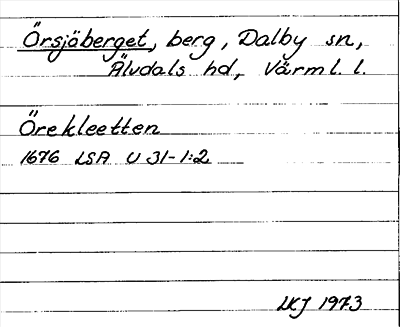 Örsjöberget, berg, Dalby sn,
Älvdals hd, Värml. l.
Örekleetten
1676 LSA U 31-1:2
LKJ 1973